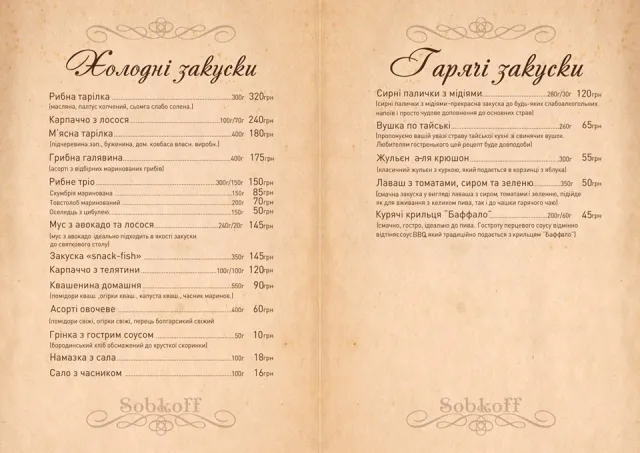 Холодні закуски
Рибна тарілка 300г 320грн
(масляна, палтус копчений, сьомга слабо солена.)
Карпаччо з лосося 100г/70г 240грн
М'ясна тарілка 400г 180грн
(підчеревина зап., буженина, дом. ковбаса власн. виробн.)
Грибна галявина 400г 175грн
(асорті з відбірних маринованих грибів)
Рибне тріо 300г/150г 150грн
Скумбрія маринована 150г 85грн
Товстолоб маринований 200г 70грн
Оселедць з цибулею 150г 50грн
Мус з авокадо та лосося 240г/20г 145грн
(мус з авокадо ідеально підходить в якості закуски
до святкового столу)
Закуска «snack-fish» 350г 145грн
Карпаччо з телятини 100г/100г 120грн
Квашенина домашня 550г 90грн
(помідори кваш. ,огірки кваш. , капуста кваш. , часник маринов.)
Асорті овочеве 400г 60грн
(помідори свіжі, огірки свіжі, перець болгарсикий свіжий
Грінка з гострим соусом 50г 10грн
(бородинський хліб обсмажений до хрусткої скоринки)
Намазка з сала 100г 18грн
Сало з часником 100г 16грн
Sobkoff
Гарячі закуски
Сирні палички з мідіями 280г/30г 120грн
(сирні палички з мідіями-прекрасна закуска до будь-яких слабоалкогольних
напоїв і просто чудове доповнення до основних страв)
Вушка по тайські 260г 65грн
(пропонуємо вашій увазі страву тайської кухні зі свинячих вушек.
Любителям гостренького цей рецепт буде довподоби)
Жульєн а-ля крюшон 300г 55грн
(класичний жульєн з куркою, який подається в корзинці з яблука)
Лаваш з томатами, сиром та зеленю 350г 50грн
(смачна закуска у вигляді лаваша з сиром, томатами і зеленню, підійде
як для вживання з келихом пива, так і до чашки гарячого чаю)
Курячі крильця "Баффало" 200г/60г 45грн
(смачно, гостро, ідеально до пива. Гостроту перцевого соусу відмінно
відтіняє соус BBQ, який традиційно подається з крильцям "Баффало")
Sobkoff